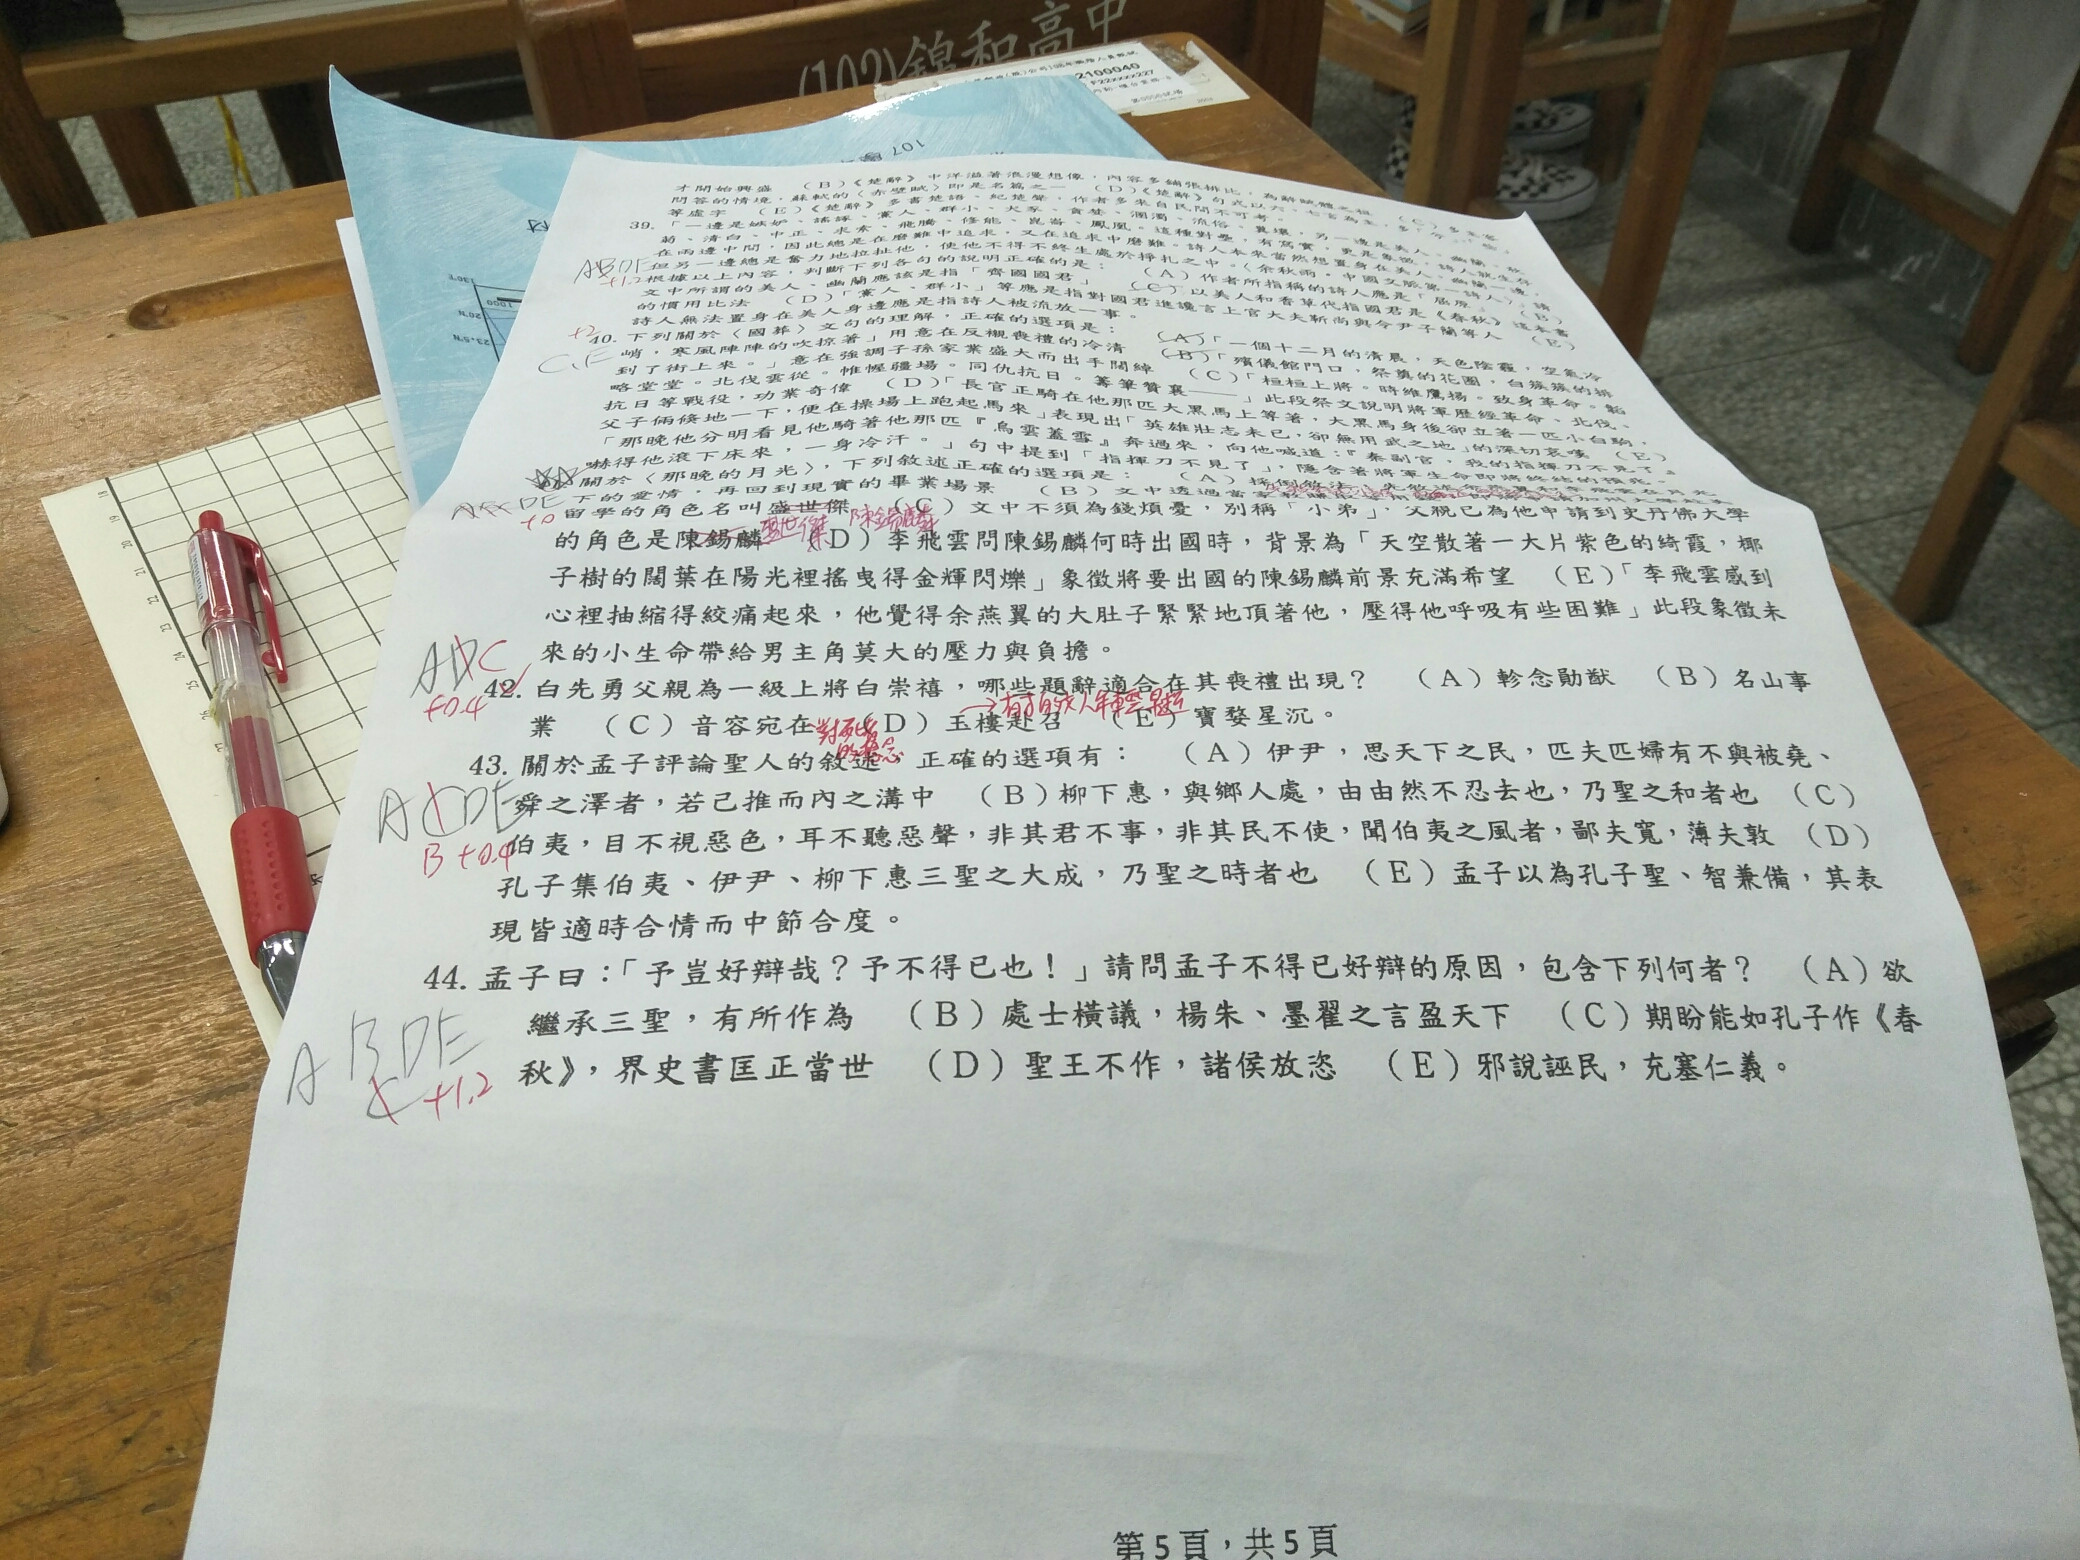 (102)錦和高中
2100040
107
130°E
1000
120°N
23.5°N
才開始興盛 (B)《楚辭》中洋溢著浪漫想像，內容多鋪張排比，為辭賦體之祖 (C)
問答的情境，蘇軾的〈赤壁賦〉即是名篇之一 (D)《楚辭》句式以六、七言為主，多
等虛字 (E)《楚辭》多書楚語、紀楚聲，作者多來自民間不可考。
39. 「一邊是嫉妒、謠諑、黨人、群小、犬豕、貪婪、溷濁、流俗、糞壤，另一邊是美人、幽蘭、秋
菊、清白、中正、求索、飛騰、修能、崑崙、鳳凰。這種對壘，有寫實，更是象徵。詩人就生存
在兩邊中間，因此總是在磨難中追求，又在追求中磨難。詩人本來當然想置身在美人、幽蘭一邊，
但另一邊總是奮力地拉扯他，使他不得不終生處於掙扎之中。(余秋雨。中國文脈第一詩人)」請
ABDE
+1.2
根據以上內容，判斷下列各句的說明正確的是： (A)作者所指稱的詩人應是「屈原」 (B)
文中所謂的美人、幽蘭應該是指「齊國國君」 (C)以美人和香草代指國君是《春秋》這本書
的慣用比法 (D)「黨人、群小」等應是指對國君進讒言上官大夫靳尚與令尹子蘭等人 (E)
詩人無法置身在美人身邊應是指詩人被流放一事。
+2
40. 下列關於〈國葬〉文句的理解，正確的選項是： (A)「一個十二月的清晨，天色陰霾，空氣冷
C,E
峭，寒風陣陣的吹掠著」用意在反襯喪禮的冷清 (B)「殯儀館門口，祭奠的花圈，白簇簇的排
到了街上來。」意在強調子孫家業盛大而出手闊綽 (C)「桓桓上將。時維鷹揚。致身革命。韜
略堂堂。北伐雲從。帷幄疆場。同仇抗日。籌筆贊襄——」此段祭文說明將軍歷經革命、北伐、
抗日等戰役，功業奇偉 (D)「長官正騎在他那匹大黑馬上等著，大黑馬身後卻立著一匹小白駒，
父子倆倏地一下，便在操場上跑起馬來」表現出「英雄壯志未已，卻無用武之地」的深切哀嘆 (E)
「那晚他分明看見他騎著他那匹『烏雲蓋雪』奔過來，向他喊道：『秦副官，我的指揮刀不見了。』
嚇得他滾下床來，一身冷汗。」句中提到「指揮刀不見了」，隱含著將軍生命即將終結的預兆。
關於〈那晚的月光〉，下列敘述正確的選項是： (A)採倒敘法，先敘述
下的愛情，再回到現實的畢業場景 (B)文中透過當家教賺
DE
+0
留學的角色名叫盛世傑 (C)文中不須為錢煩憂，別稱「小弟」，父親已為他申請到史丹佛大學
盛世傑 陳錫麟
的角色是陳錫麟 (D)李飛雲問陳錫麟何時出國時，背景為「天空散著一大片紫色的綺霞，椰
子樹的闊葉在陽光裡搖曳得金輝閃爍」象徵將要出國的陳錫麟前景充滿希望 (E)「李飛雲感到
心裡抽縮得絞痛起來，他覺得余燕翼的大肚子緊緊地頂著他，壓得他呼吸有些困難」此段象徵未
來的小生命帶給男主角莫大的壓力與負擔。
ADC
+0.4
42. 白先勇父親為一級上將白崇禧，哪些題辭適合在其喪禮出現？ (A)軫念勛猷 (B)名山事
業 (C)音容宛在 (D)玉樓赴召 (E)寶婺星沉。
對死者
的思念
→有才的文人年輕早逝
43. 關於孟子評論聖人的敘述，正確的選項有： (A)伊尹，思天下之民，匹夫匹婦有不與被堯、
ACDE
舜之澤者，若己推而內之溝中 (B)柳下惠，與鄉人處，由由然不忍去也，乃聖之和者也 (C)
B +0.4
伯夷，目不視惡色，耳不聽惡聲，非其君不事，非其民不使，聞伯夷之風者，鄙夫寬，薄夫敦 (D)
孔子集伯夷、伊尹、柳下惠三聖之大成，乃聖之時者也 (E)孟子以為孔子聖、智兼備，其表
現皆適時合情而中節合度。
44. 孟子曰：「予豈好辯哉？予不得已也！」請問孟子不得已好辯的原因，包含下列何者？ (A)欲
繼承三聖，有所作為 (B)處士橫議，楊朱、墨翟之言盈天下 (C)期盼能如孔子作《春
秋》，界史書匡正當世 (D)聖王不作，諸侯放恣 (E)邪說誣民，充塞仁義。
ABDE
C +1.2
第5頁，共5頁